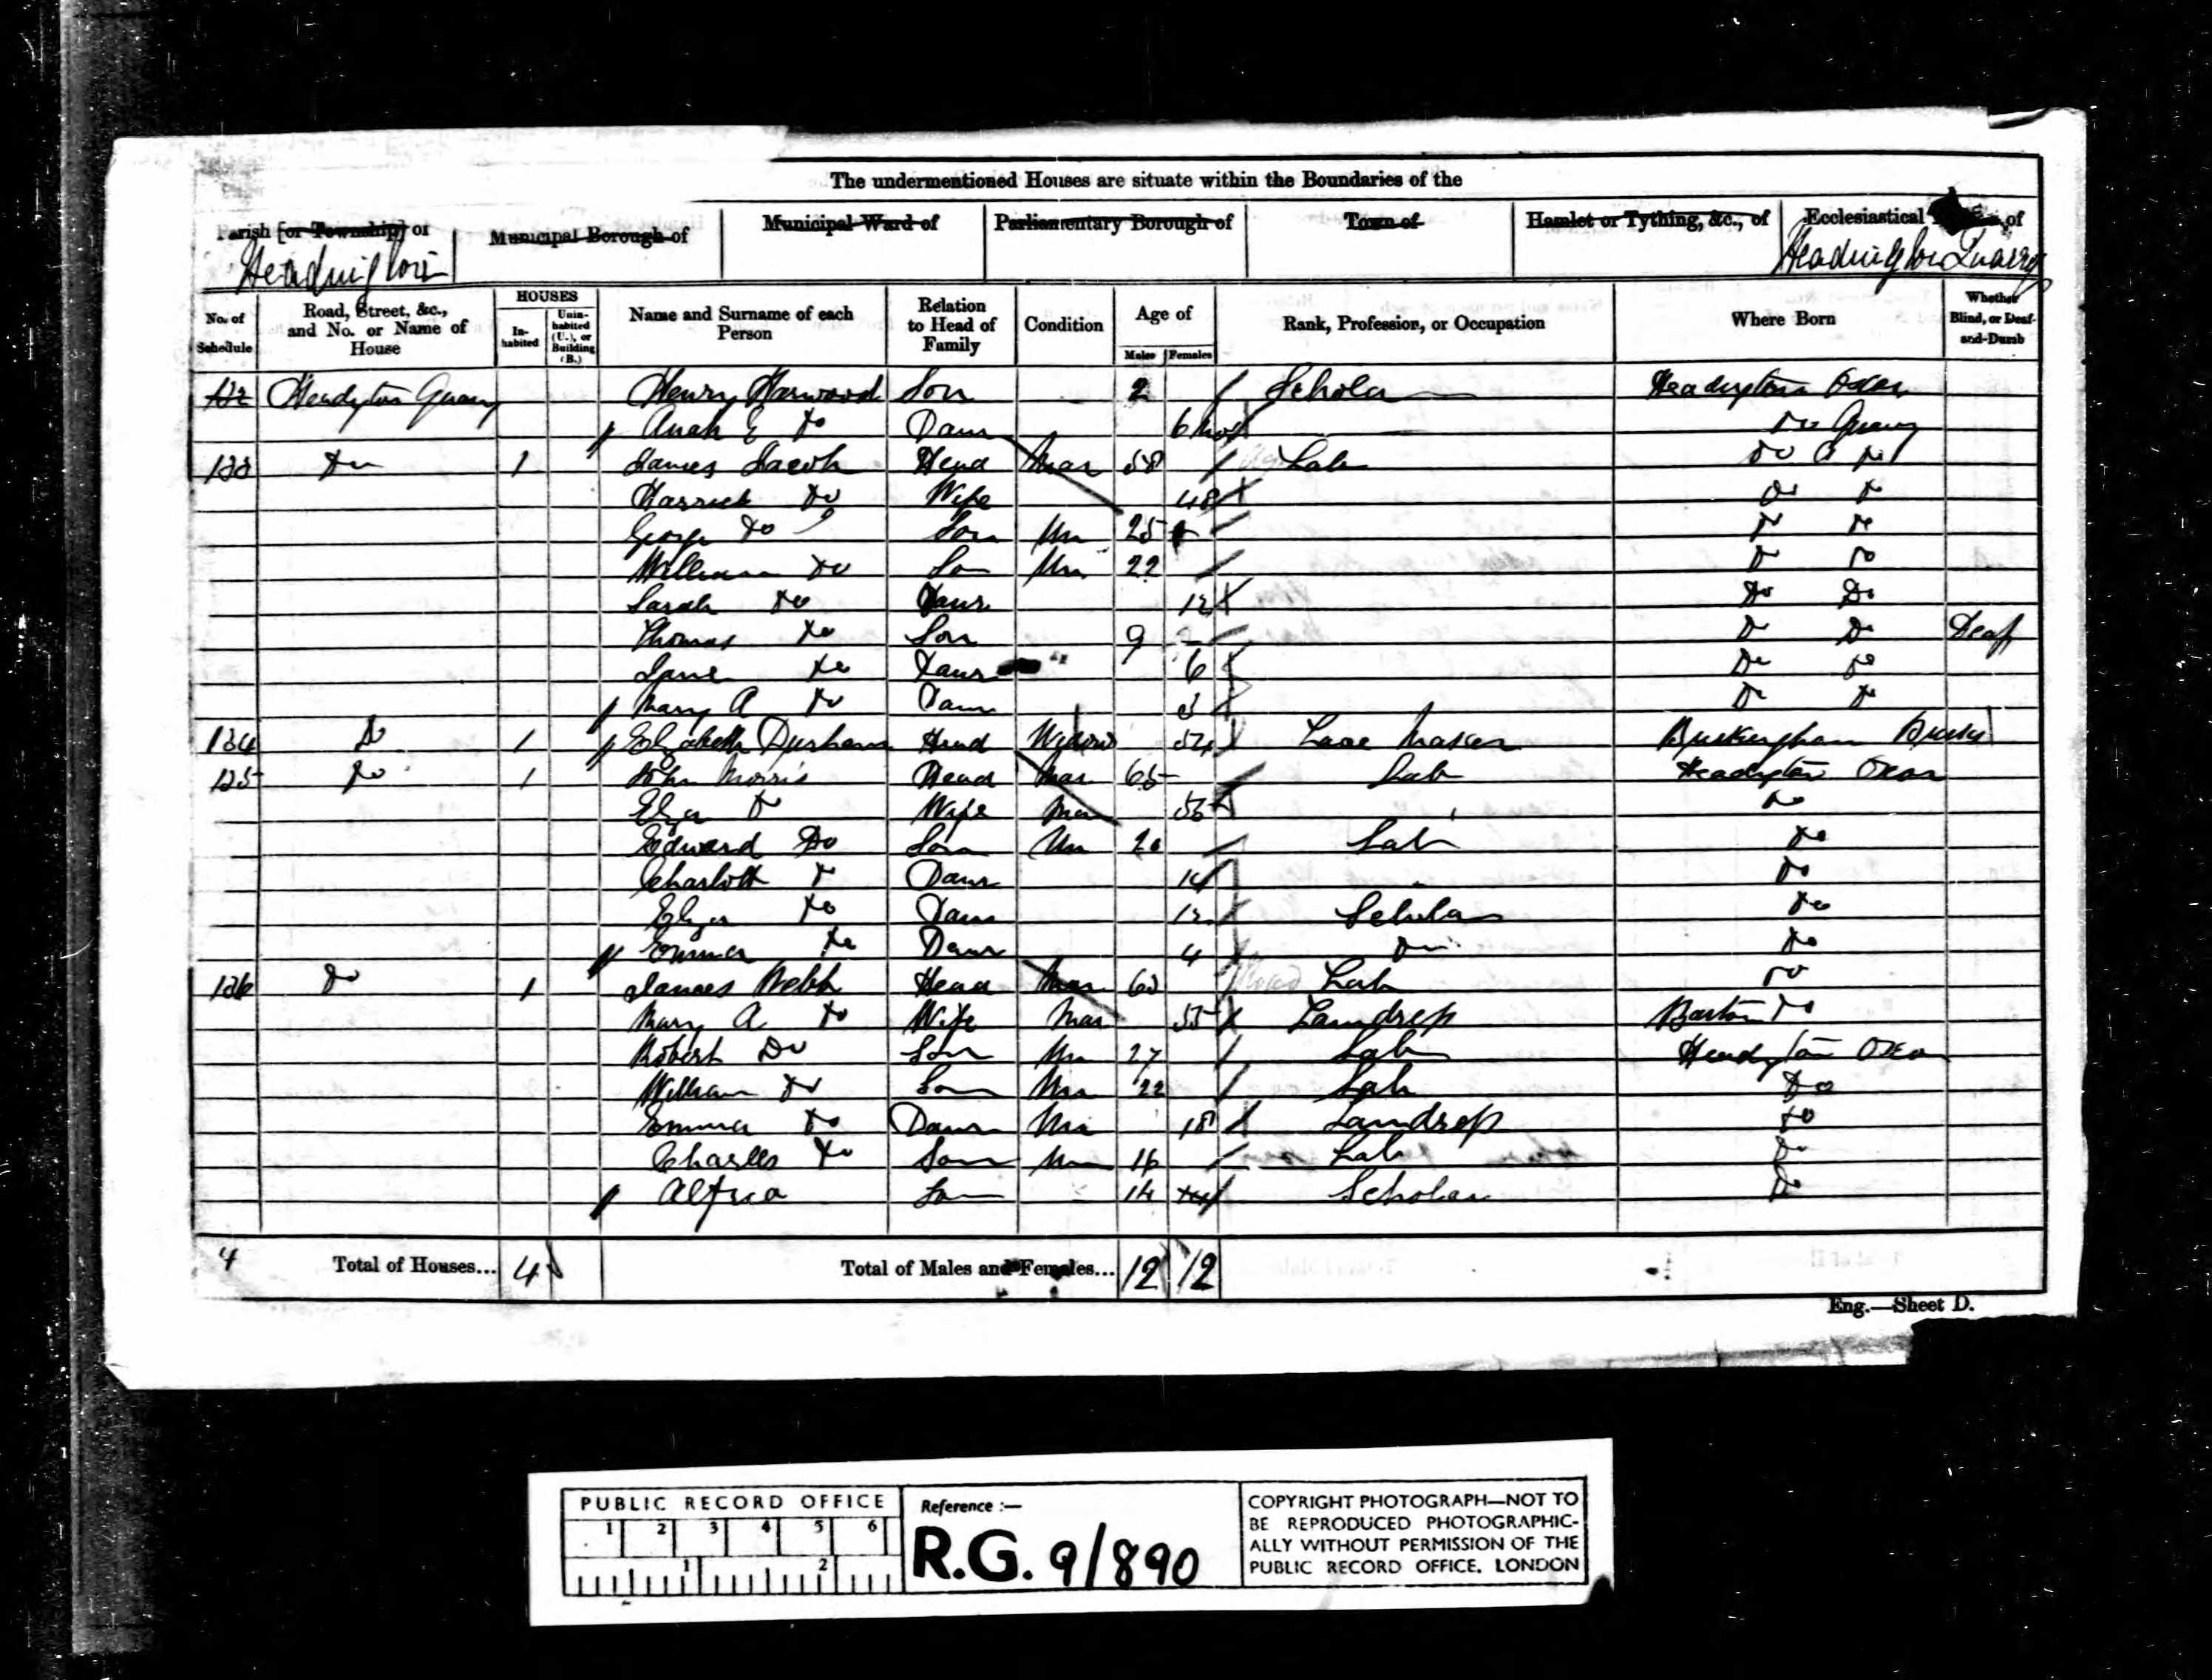 The undermentioned Houses are situate within the Boundaries of the
Parish [or Township] of Municipal Borough of Municipal Ward of Parliamentary Borough of Town of Hamlet or Tything, &c., of Ecclesiastical of
Headington Headington Quarry
No. of Schedule Road, Street, &c., and No. or Name of House HOUSES Inhabited Uninhabited (U.), or Building (B.) Name and Surname of each Person Relation to Head of Family Condition Age of Males Females Rank, Profession, or Occupation Where Born Whether Blind, or Deaf-and-Dumb
Headington Quarry Henry Harwood Son 2 Scholar Headington Oxon
E Do Daur 6 Mos Do Quarry
123 Do 1 James Jacob Head Mar 58 Lab Do
Harriet Do Wife 48 Do Do
George Do Son Un 25 Do Do
William Do Son Un 22 Do Do
Sarah Do Daur 12 Do Do
Thomas Do Son 9 Do Do Deaf
Jane Do Daur 6 Do Do
Mary A Do Daur 3 Do Do
124 Do 1 Elizabeth Durham Head Widow 54 Lace Maker Buckingham Bucks
125 Do 1 John Morris Head Mar 65 Lab Headington Oxon
Eliza Do Wife Mar 53 Do
Edward Do Son Un 20 Lab Do
Charlott Do Daur 14 Do
Eliza Do Daur 12 Scholar Do
Emma Do Daur 4 Do Do
126 Do 1 James Webb Head Mar 60 Lab Do
Mary A Do Wife Mar 55 Laundress Barton Do
Robert Do Son Un 27 Lab Headington Oxon
William Do Son Un 22 Lab Do
Emma Do Daur Un 18 Laundress Do
Charles Do Son Un 16 Lab Do
Alfred Son 14 Scholar Do
4 Total of Houses... 4 Total of Males and Females... 12 12
Eng.—Sheet D.
PUBLIC RECORD OFFICE
1 2 3 4 5 6
1 2
Reference :—
R.G. 9/890
COPYRIGHT PHOTOGRAPH—NOT TO
BE REPRODUCED PHOTOGRAPHIC-
ALLY WITHOUT PERMISSION OF THE
PUBLIC RECORD OFFICE. LONDON